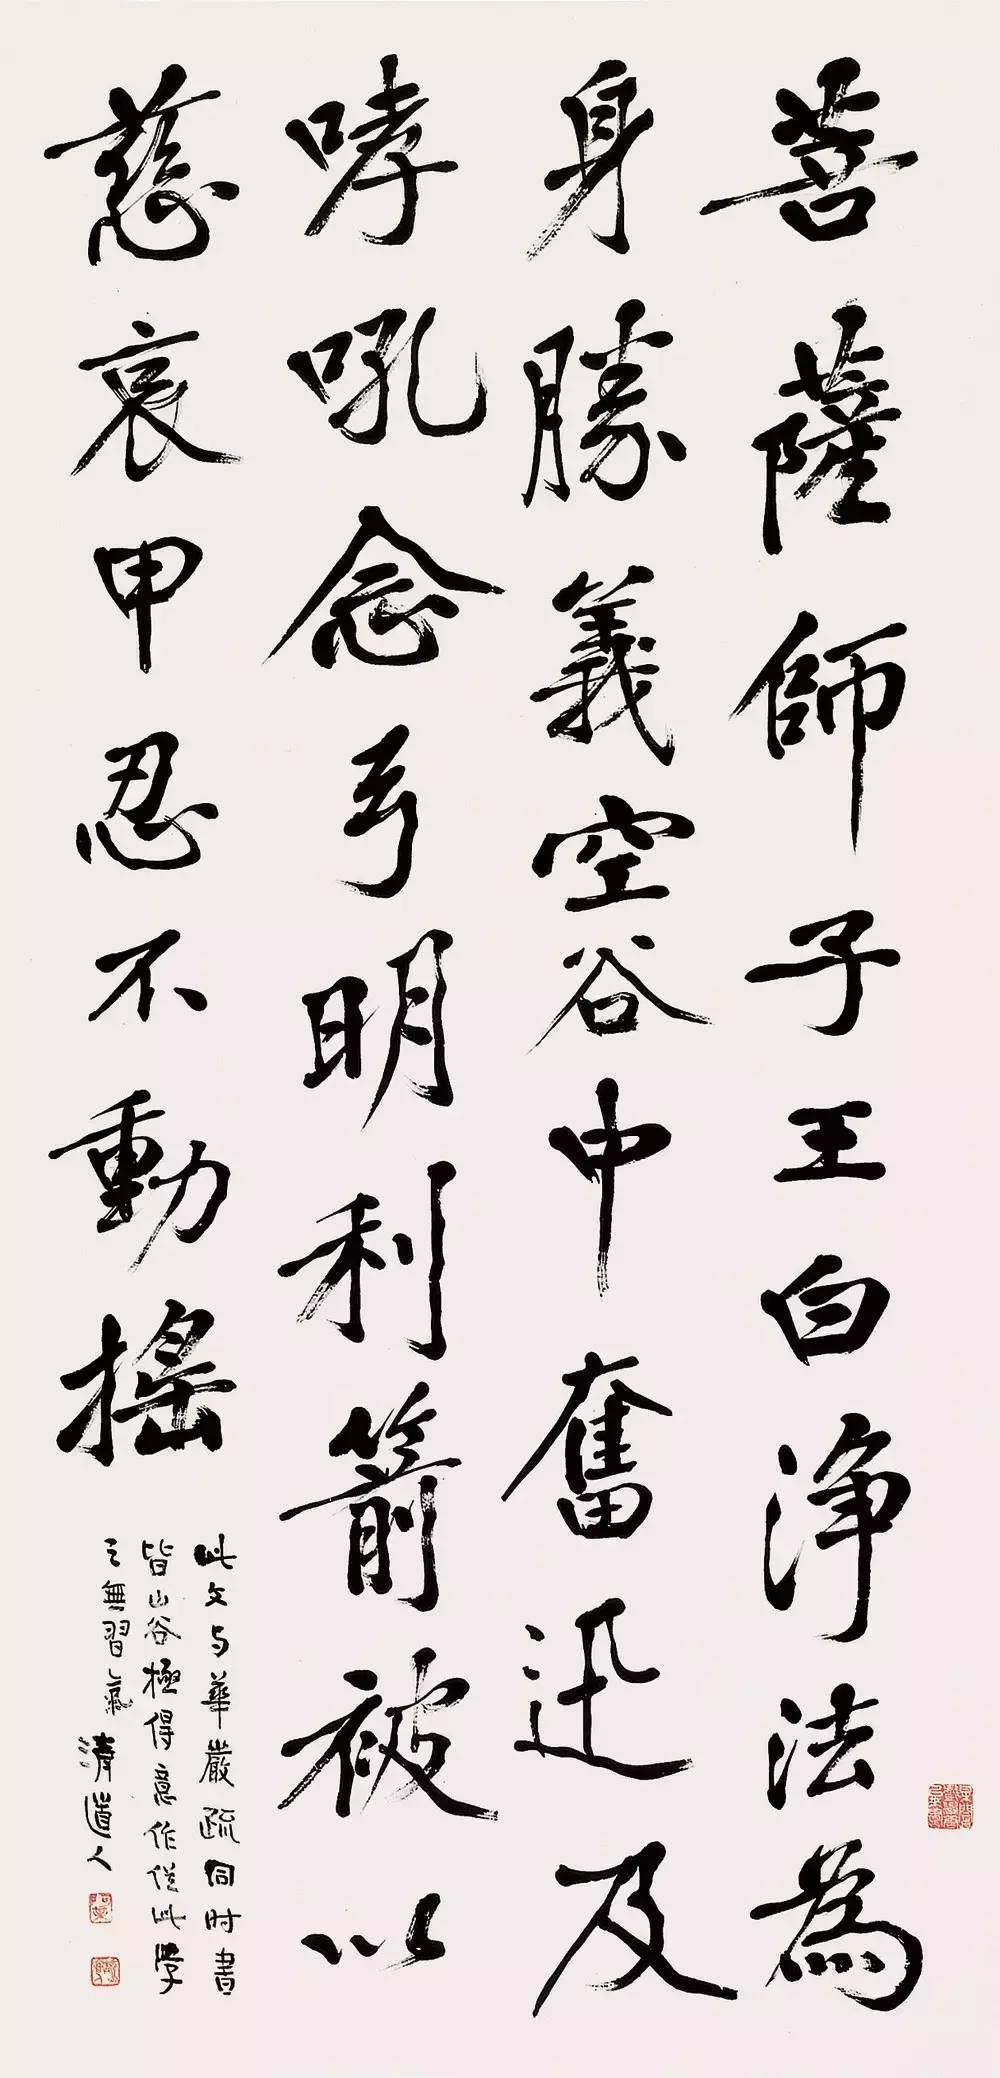 菩薩師子王白淨法為
身勝義空谷中奮迅及
哮吼念弓明利箭被以
慈哀甲忍不動搖
此文与華嚴疏同时書
皆山谷極得意作從此学
之無習氣 清道人